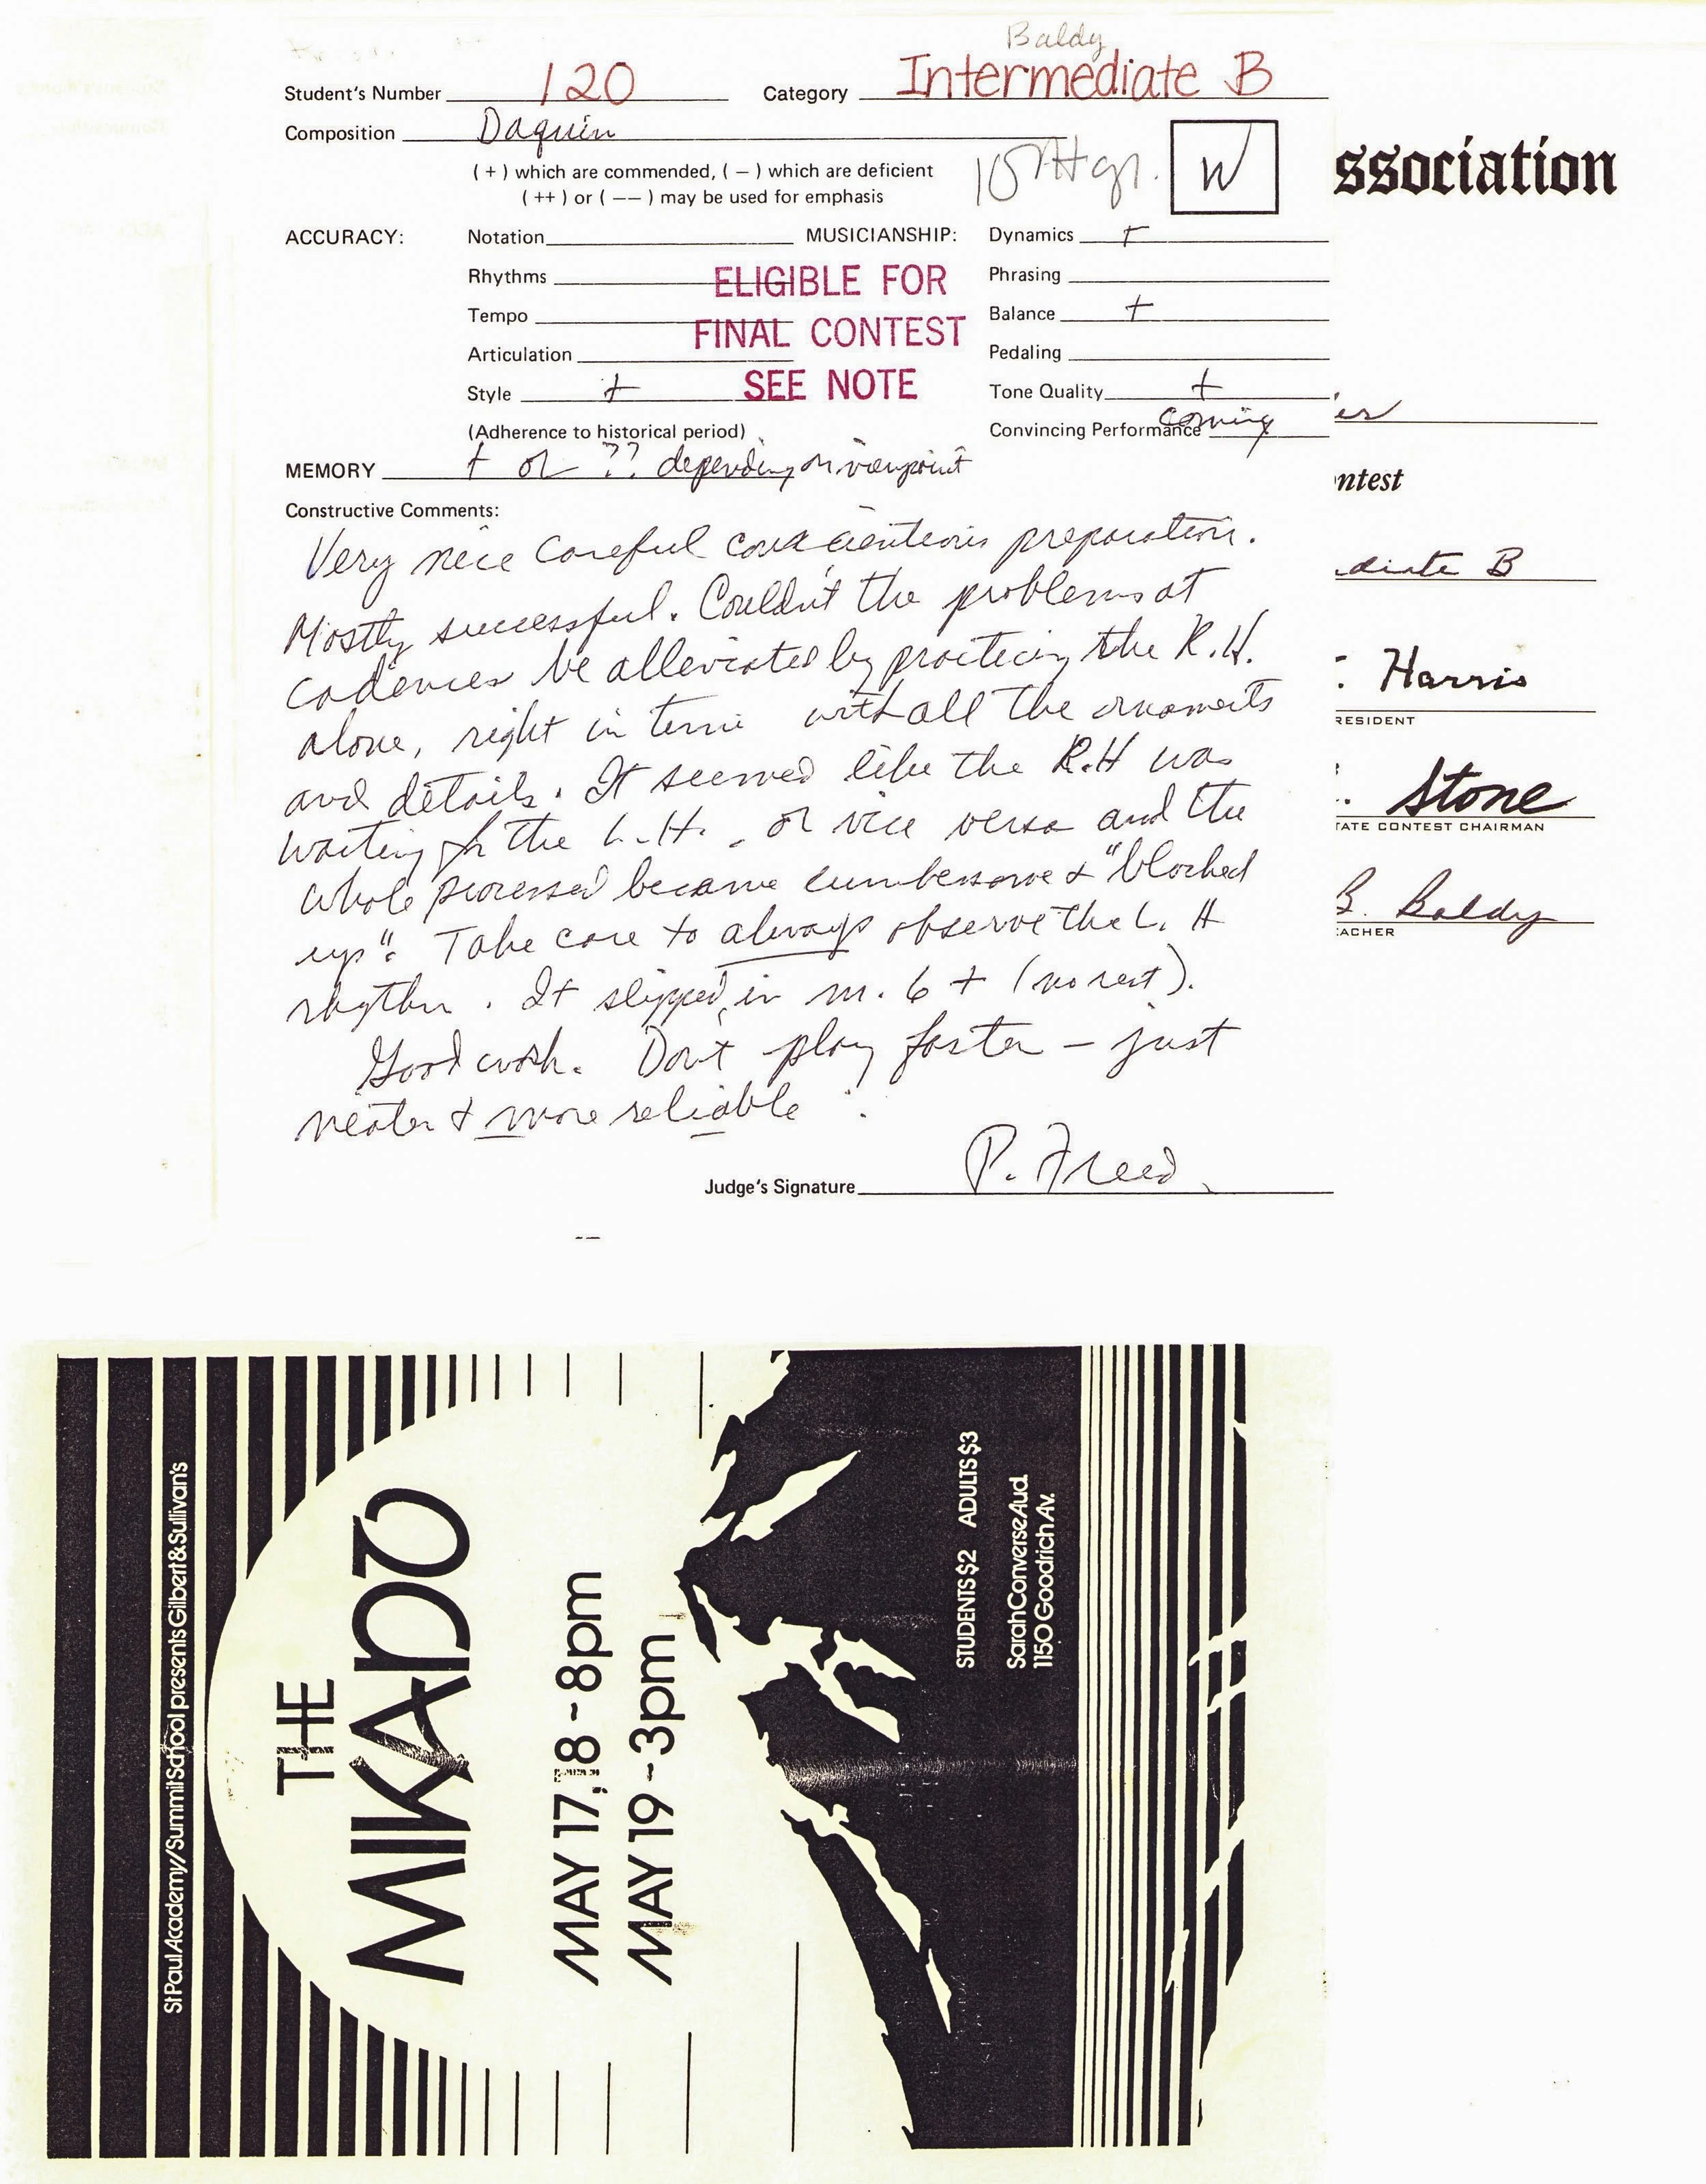 Baldy
Student's Number 120 Category Intermediate B
Composition Daquin
(+) which are commended, (−) which are deficient
(++) or (−−) may be used for emphasis
10th gr.
W
ACCURACY: Notation MUSICIANSHIP: Dynamics +
Rhythms Phrasing
Tempo Balance +
Articulation Pedaling
Style + Tone Quality +
(Adherence to historical period) Convincing Performance coming
ELIGIBLE FOR
FINAL CONTEST
SEE NOTE
MEMORY + or ?? depending on viewpoint
Constructive Comments:
Very nice careful conscientious preparation.
Mostly successful. Couldn't the problems at
cadences be alleviated by practicing the R.H.
alone, right in time with all the ornaments
and details. It seemed like the R.H was
waiting for the L.H. or vice versa and the
whole processed became cumbersome & "blocked
up". Take care to always observe the L. H
rhythm. It slipped in m. 6 + (no rest).
Good work. Don't play faster – just
neater & more reliable.
Judge's Signature P. Freed
ssociation
er
ntest
diate B
Harris
RESIDENT
Stone
TATE CONTEST CHAIRMAN
B. Baldy
EACHER
St Paul Academy/Summit School presents Gilbert & Sullivan's
THE
MIKADO
MAY 17, 18 - 8pm
MAY 19 - 3pm
STUDENTS $2 ADULTS $3
Sarah Converse Aud.
1150 Goodrich Av.